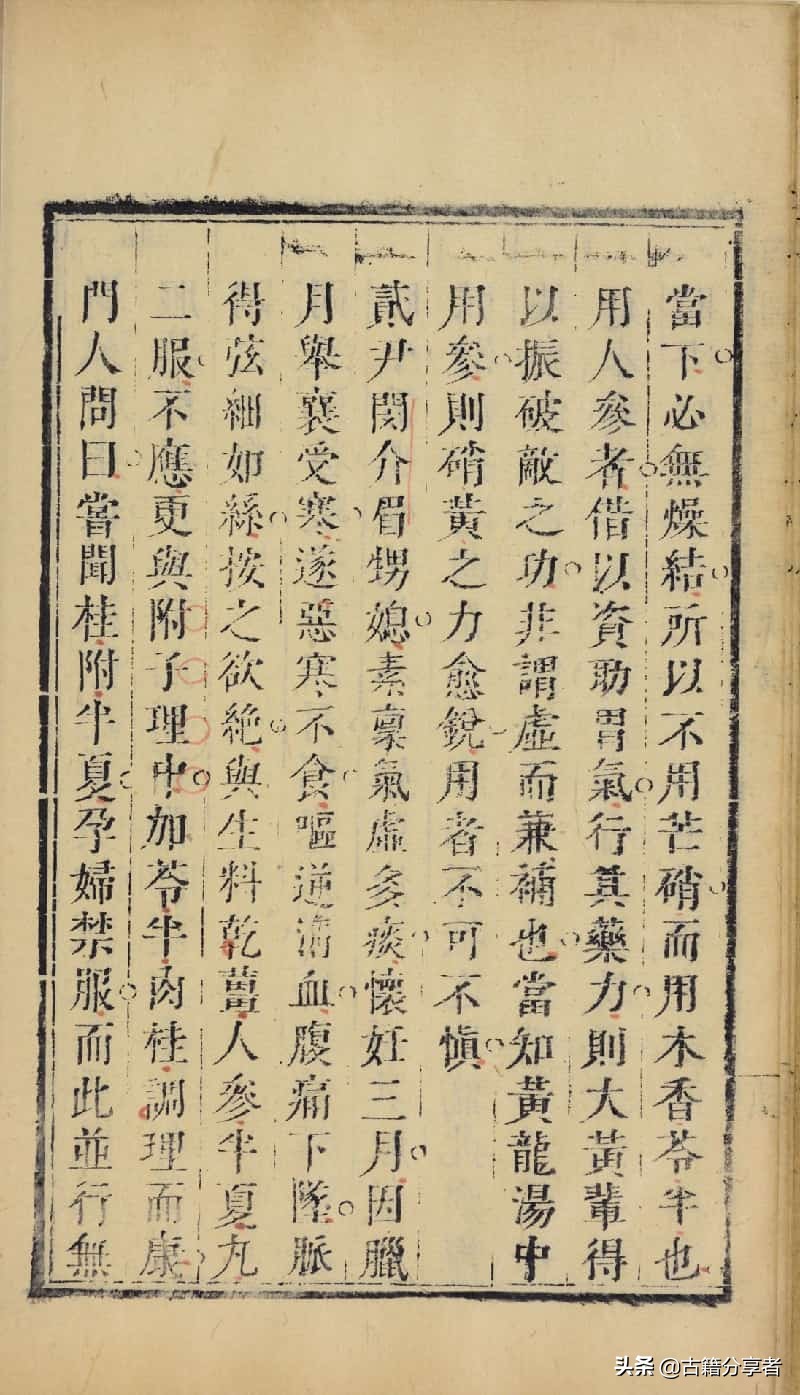 當下必無燥結所以不用芒硝而用木香苓半也
用人參者借以資助胃氣行其藥力則大黃輩得
以振破敵之功非謂虛而兼補也當知黃龍湯中
用參則硝黃之力愈銳用者不可不慎
貳尹閔介眉甥媳素禀氣虛多痰懷妊三月因臘
月舉襄受寒遂惡寒不食嘔逆清血腹痛下墜脈
得弦細如絲按之欲絕與生料乾薑人參半夏丸
二服不應更與附子理中加苓半肉桂調理而康
門人問曰嘗聞桂附半夏孕婦禁服而此並行無
头条 @古籍分享者